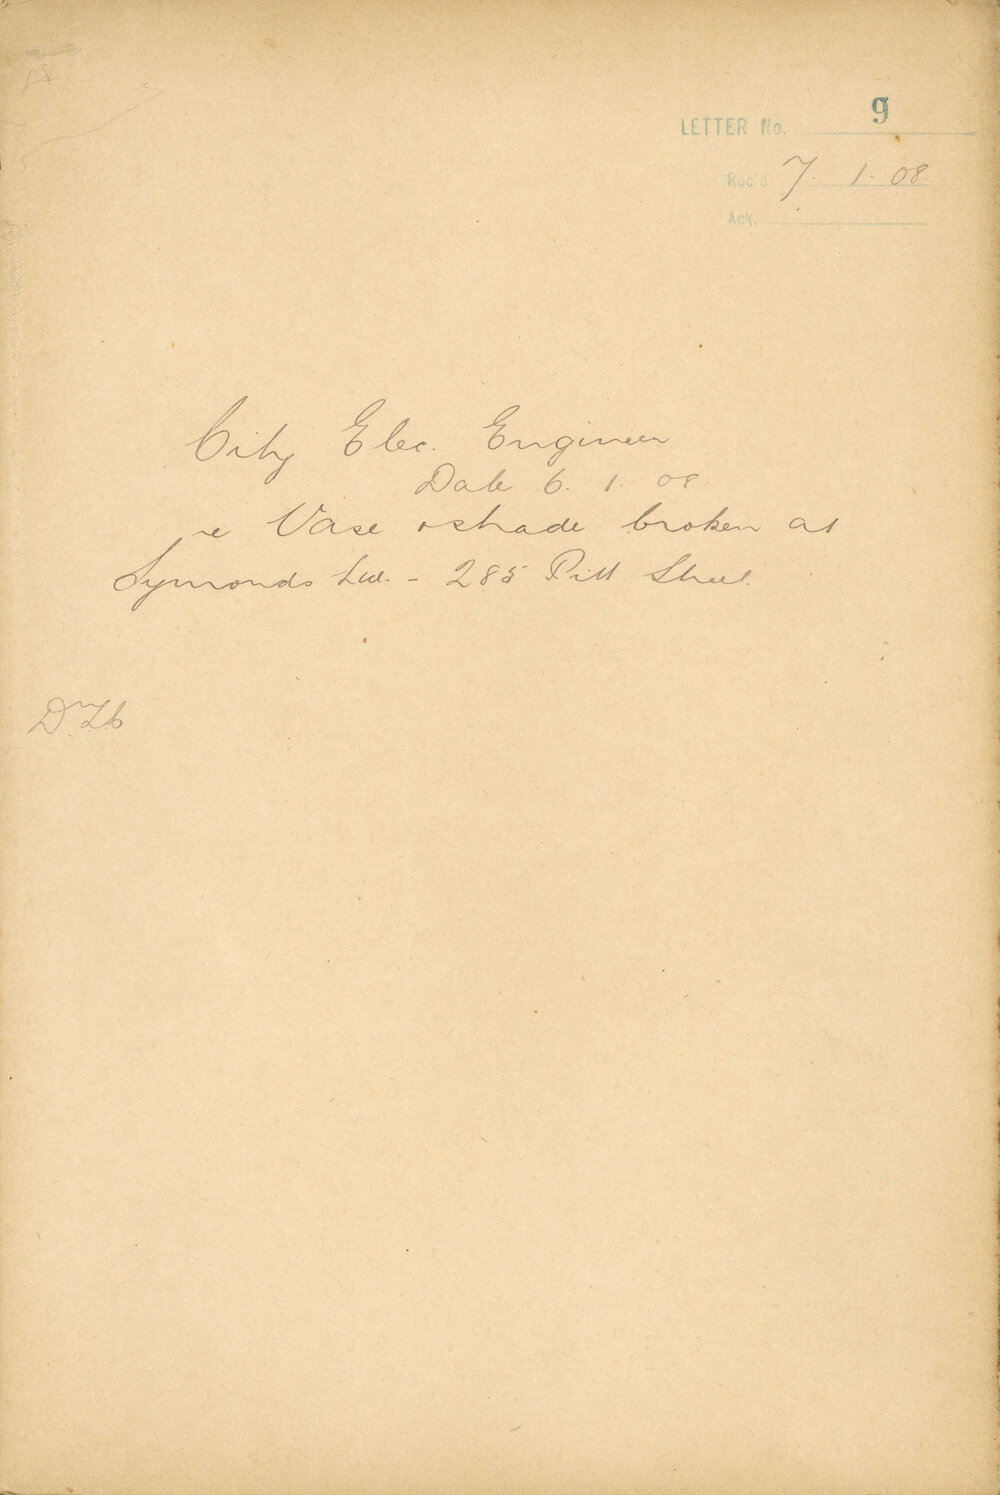 LETTER No. 9
Rec'd. 7. 1. 08.
Ack.
City Elec. Engineer
Date 6. 1. 08.
re Vase & shade broken at
Symonds Ltd. - 285 Pitt Street.